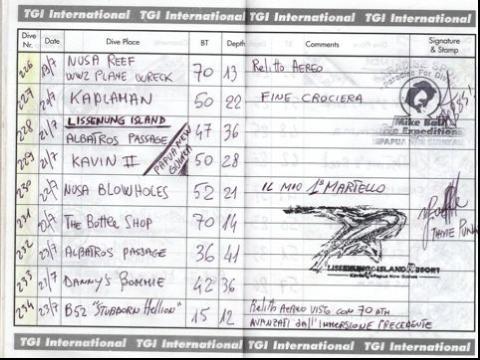 TGI International TGI International TGI International TGI International
Dive Nr. Date Dive Place BT Depth Comments Signature & Stamp
226 19/7 NUSA REEF WW2 PLANE WRECK 70 13 Relitto AEREO
227 KAPLAMAN 50 22 FINE CROCIERA
Mike Ball
Dive Expeditions
PAPUA NEW GUINEA
LISSENUNG ISLAND
228 21/7 ALBATROS PASSAGE 47 36
PAPUA NEW GUINEA
229 21/7 KAVIN II 50 28
230 22/7 NUSA BLOWHOLES 52 21 IL MIO 1° MARTELLO
231 The Botter Shop 70 14
232 23/7 ALBATROS PASSAGE 36 41
LISSENUNG ISLAND RESORT
Kavieng Papua New Guinea
233 21/7 DANNY'S BOMMIE 42 36
234 23/7 B52 "STUBBORN Hellion" 15 12 Relitto AEREO VISTO CON 70 ATM
AVANZATI dall'IMMERSIONE PRECEDENTE
TGI International TGI International TGI International TGI International